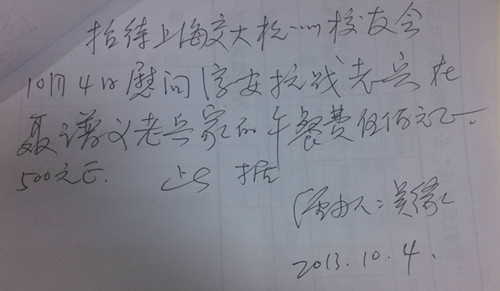 招待上海交大杭州校友会
10月4日慰问淳安抗战老兵在
聂谱义老兵家的午餐费伍佰元正.
500元正. 此据
经办人: 吴缘
2013.10.4.